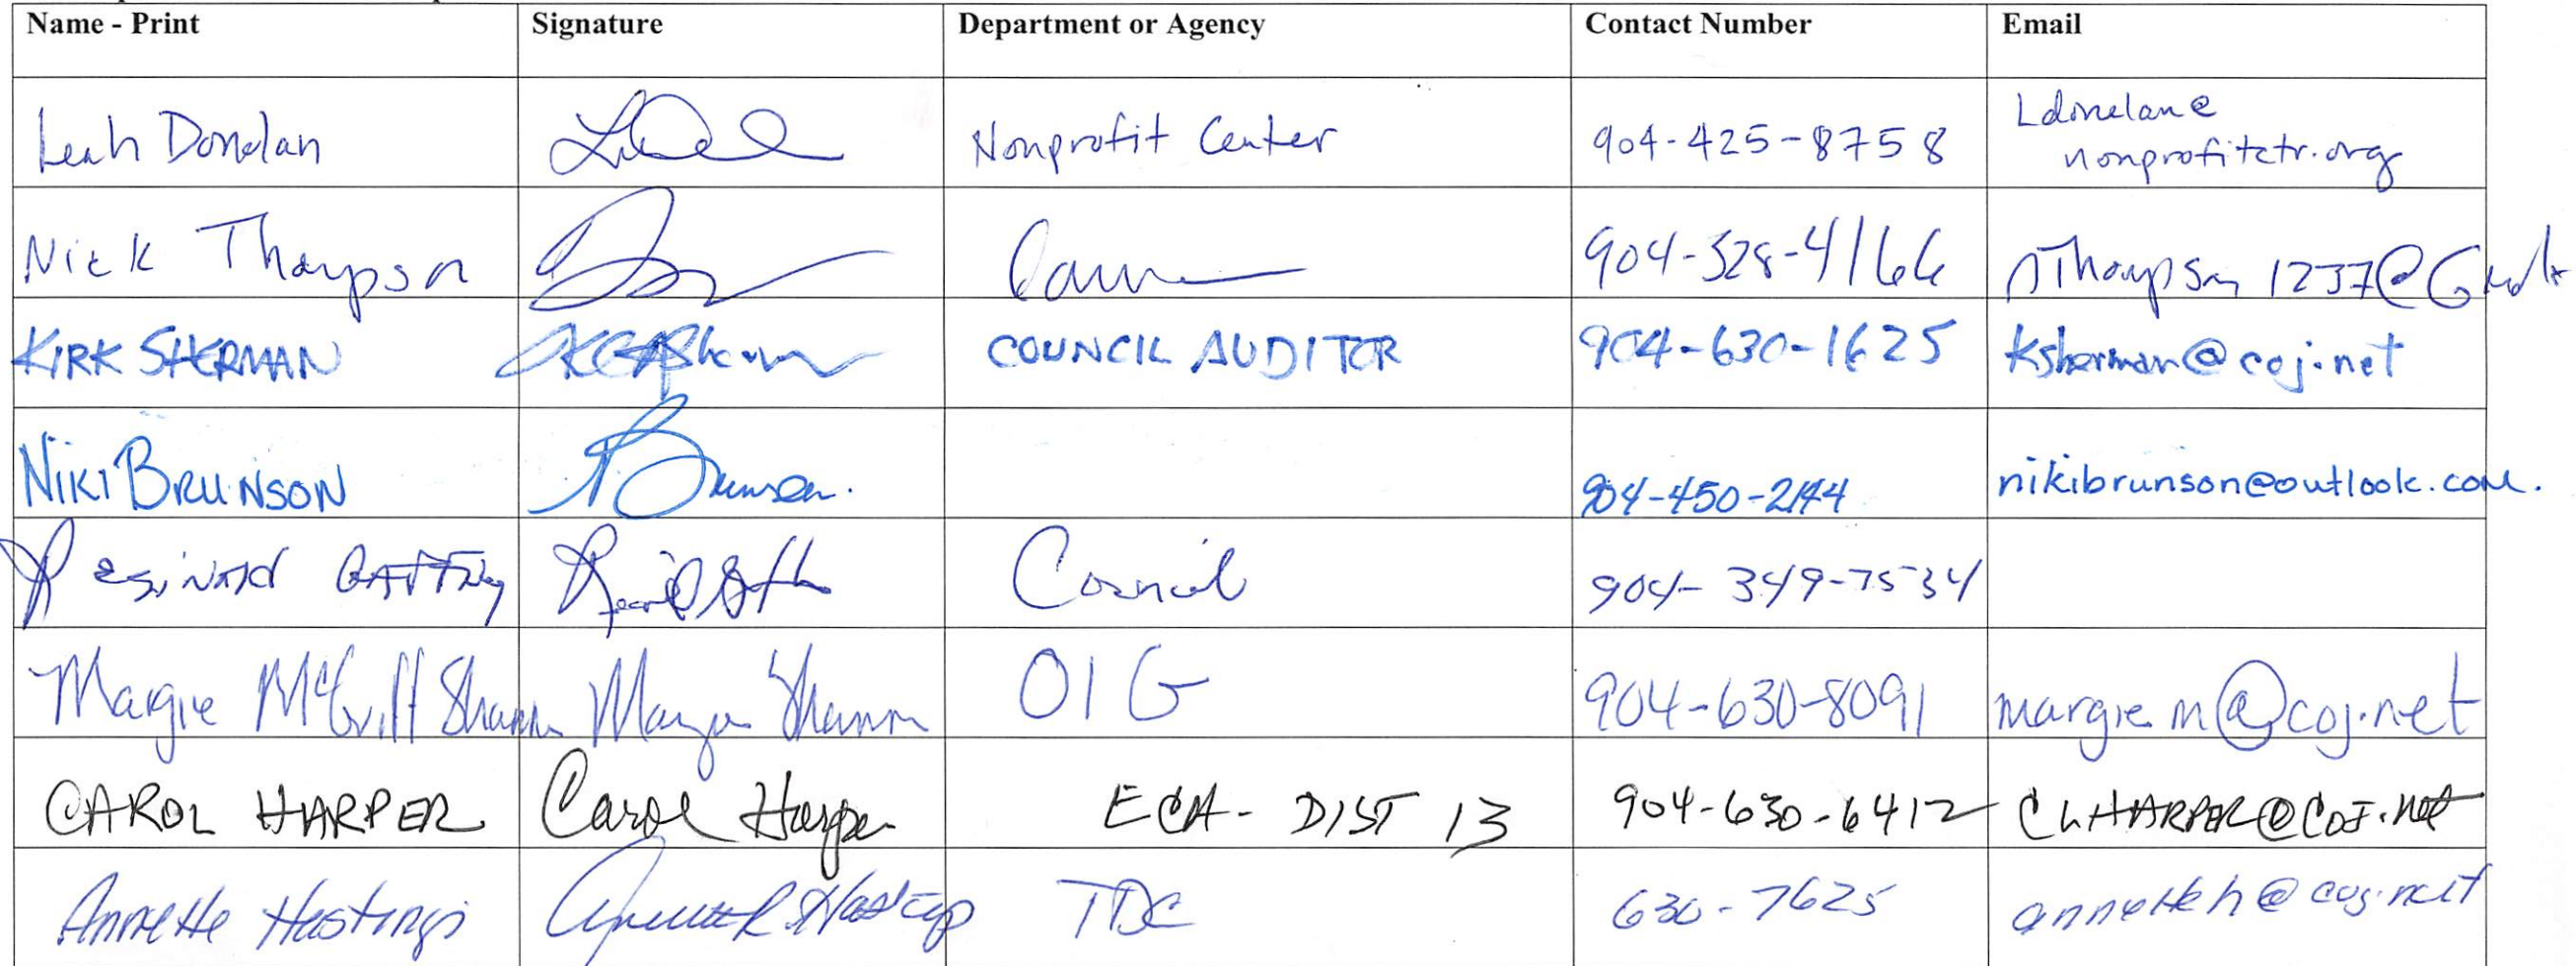 Name - Print Signature Department or Agency Contact Number Email
Leah Donelan Nonprofit Center 904-425-8758 Ldonelan@
nonprofitctr.org
Nick Thompson 904-328-4166
KIRK SHERMAN COUNCIL AUDITOR 904-630-1625 Ksherman@coj.net
NIKI BRUNSON Brunson. 904-450-2144 nikibrunson@outlook.com.
Reginald Gaffney Council 904-349-7534
Margie McGriff Shann Margie Shann OIG 904-630-8091 margiem@coj.net
CAROL HARPER Carol Harper ECA- DIST 13 904-630-6412 CLHARPER@COJ.net
Annette Hastings Annette R Hastings TDC 630-7625 annetteh@coj.net